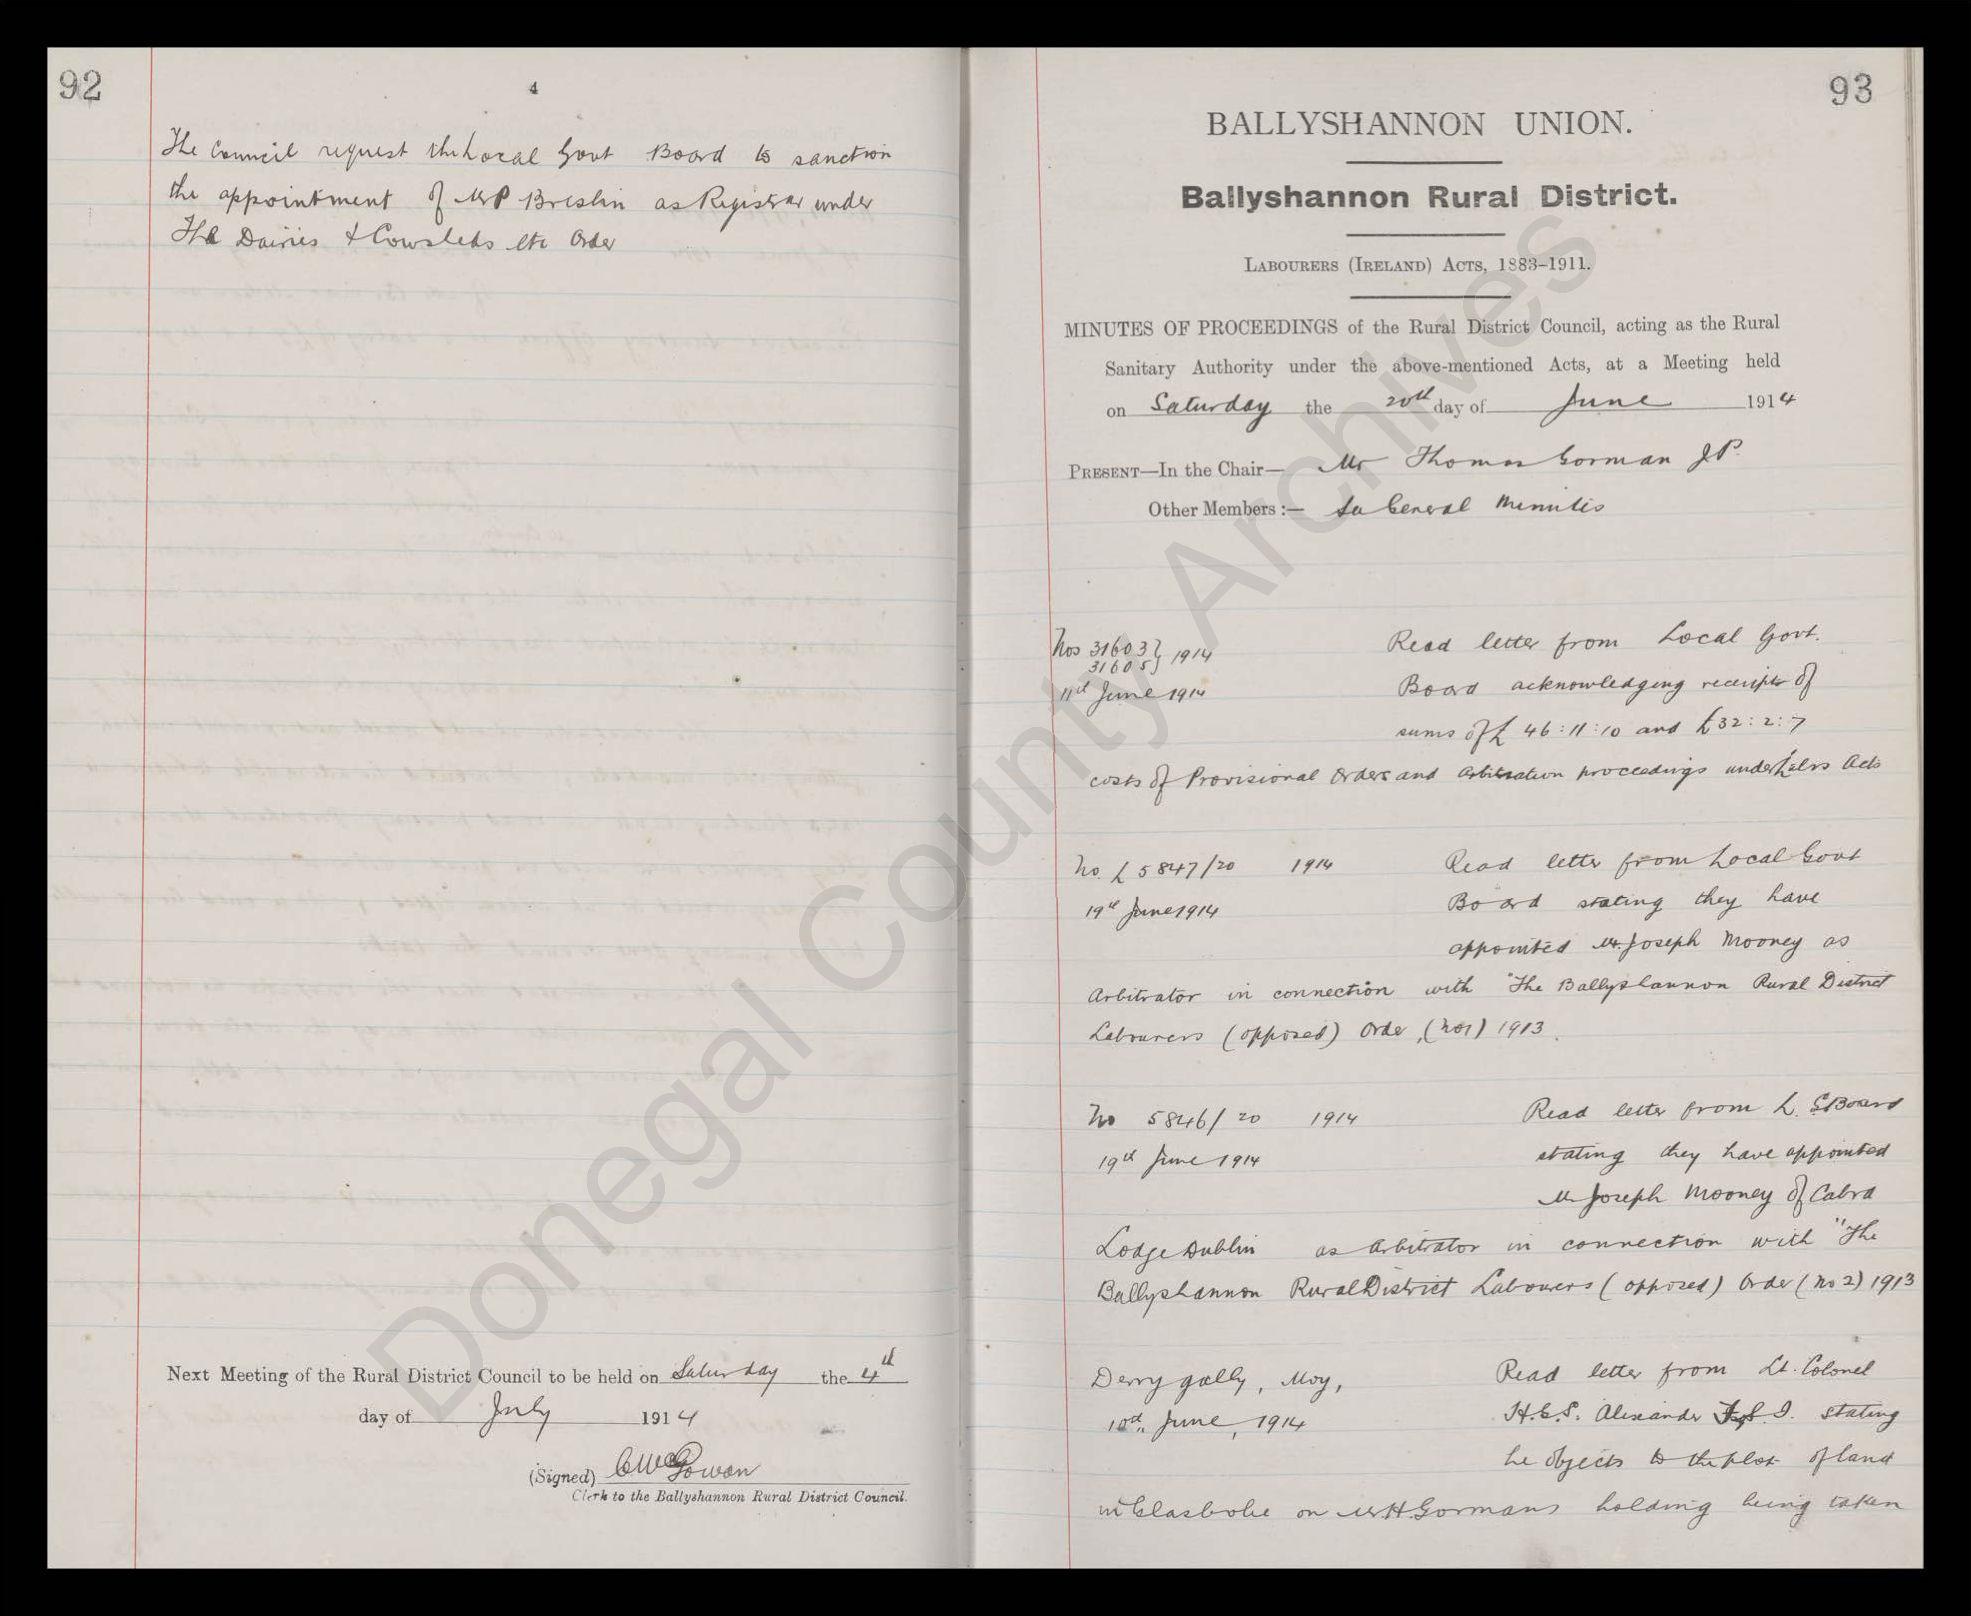 92
4
The Council request the Local Govt Board to sanction
the appointment of Mr P Breslin as Registrar under
The Dairies & Cowsheds etc Order
Next Meeting of the Rural District Council to be held on Saturday the 4th
day of July 1914
(Signed) C McGowan
Clerk to the Ballyshannon Rural District Council.
93
BALLYSHANNON UNION.
Ballyshannon Rural District.
LABOURERS (IRELAND) ACTS, 1883-1911.
MINUTES OF PROCEEDINGS of the Rural District Council, acting as the Rural
Sanitary Authority under the above-mentioned Acts, at a Meeting held
on Saturday the 20th day of June 1914
PRESENT—In the Chair— Mr Thomas Gorman J.P.
Other Members :— See General Minutes
Nos 31603} 1914
31605}
Read letter from Local Govt.
11th June 1914
Board acknowledging receipts of
sums of £46:11:10 and £32:2:7
costs of Provisional Orders and Arbitration proceedings under Labrs Acts
No. L 5847/20 1914
Read letter from Local Govt
19th June 1914
Board stating they have
appointed Mr. Joseph Mooney as
Arbitrator in connection with "The Ballyshannon Rural District
Labourers (opposed) Order, (No 1) 1913.
No 5846/20 1914
Read letter from L. G Board
19th June 1914
stating they have appointed
Mr Joseph Mooney of Cabra
Lodge Dublin as Arbitrator in connection with "The
Ballyshannon Rural District Labourers (opposed) Order (No 2) 1913
Derrygally, Moy,
Read letter from Lt. Colonel
10th June, 1914
Alexander stating
he objects to the plot of land
in on Mr H Gormans holding being taken
Donegal County Archives